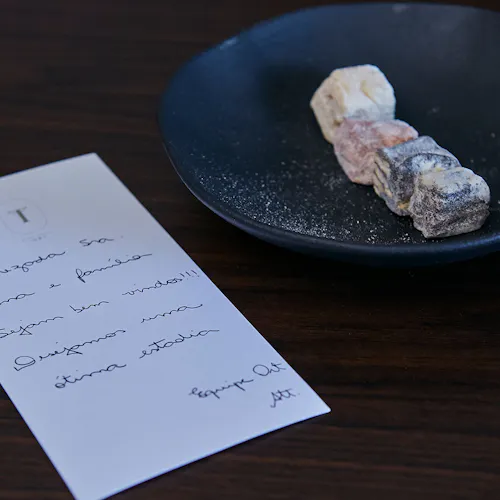 T
ezada Sra.
na e família
Sejam bem vindos!!!
Desejamos uma
ótima estadia
Equipe
Att.